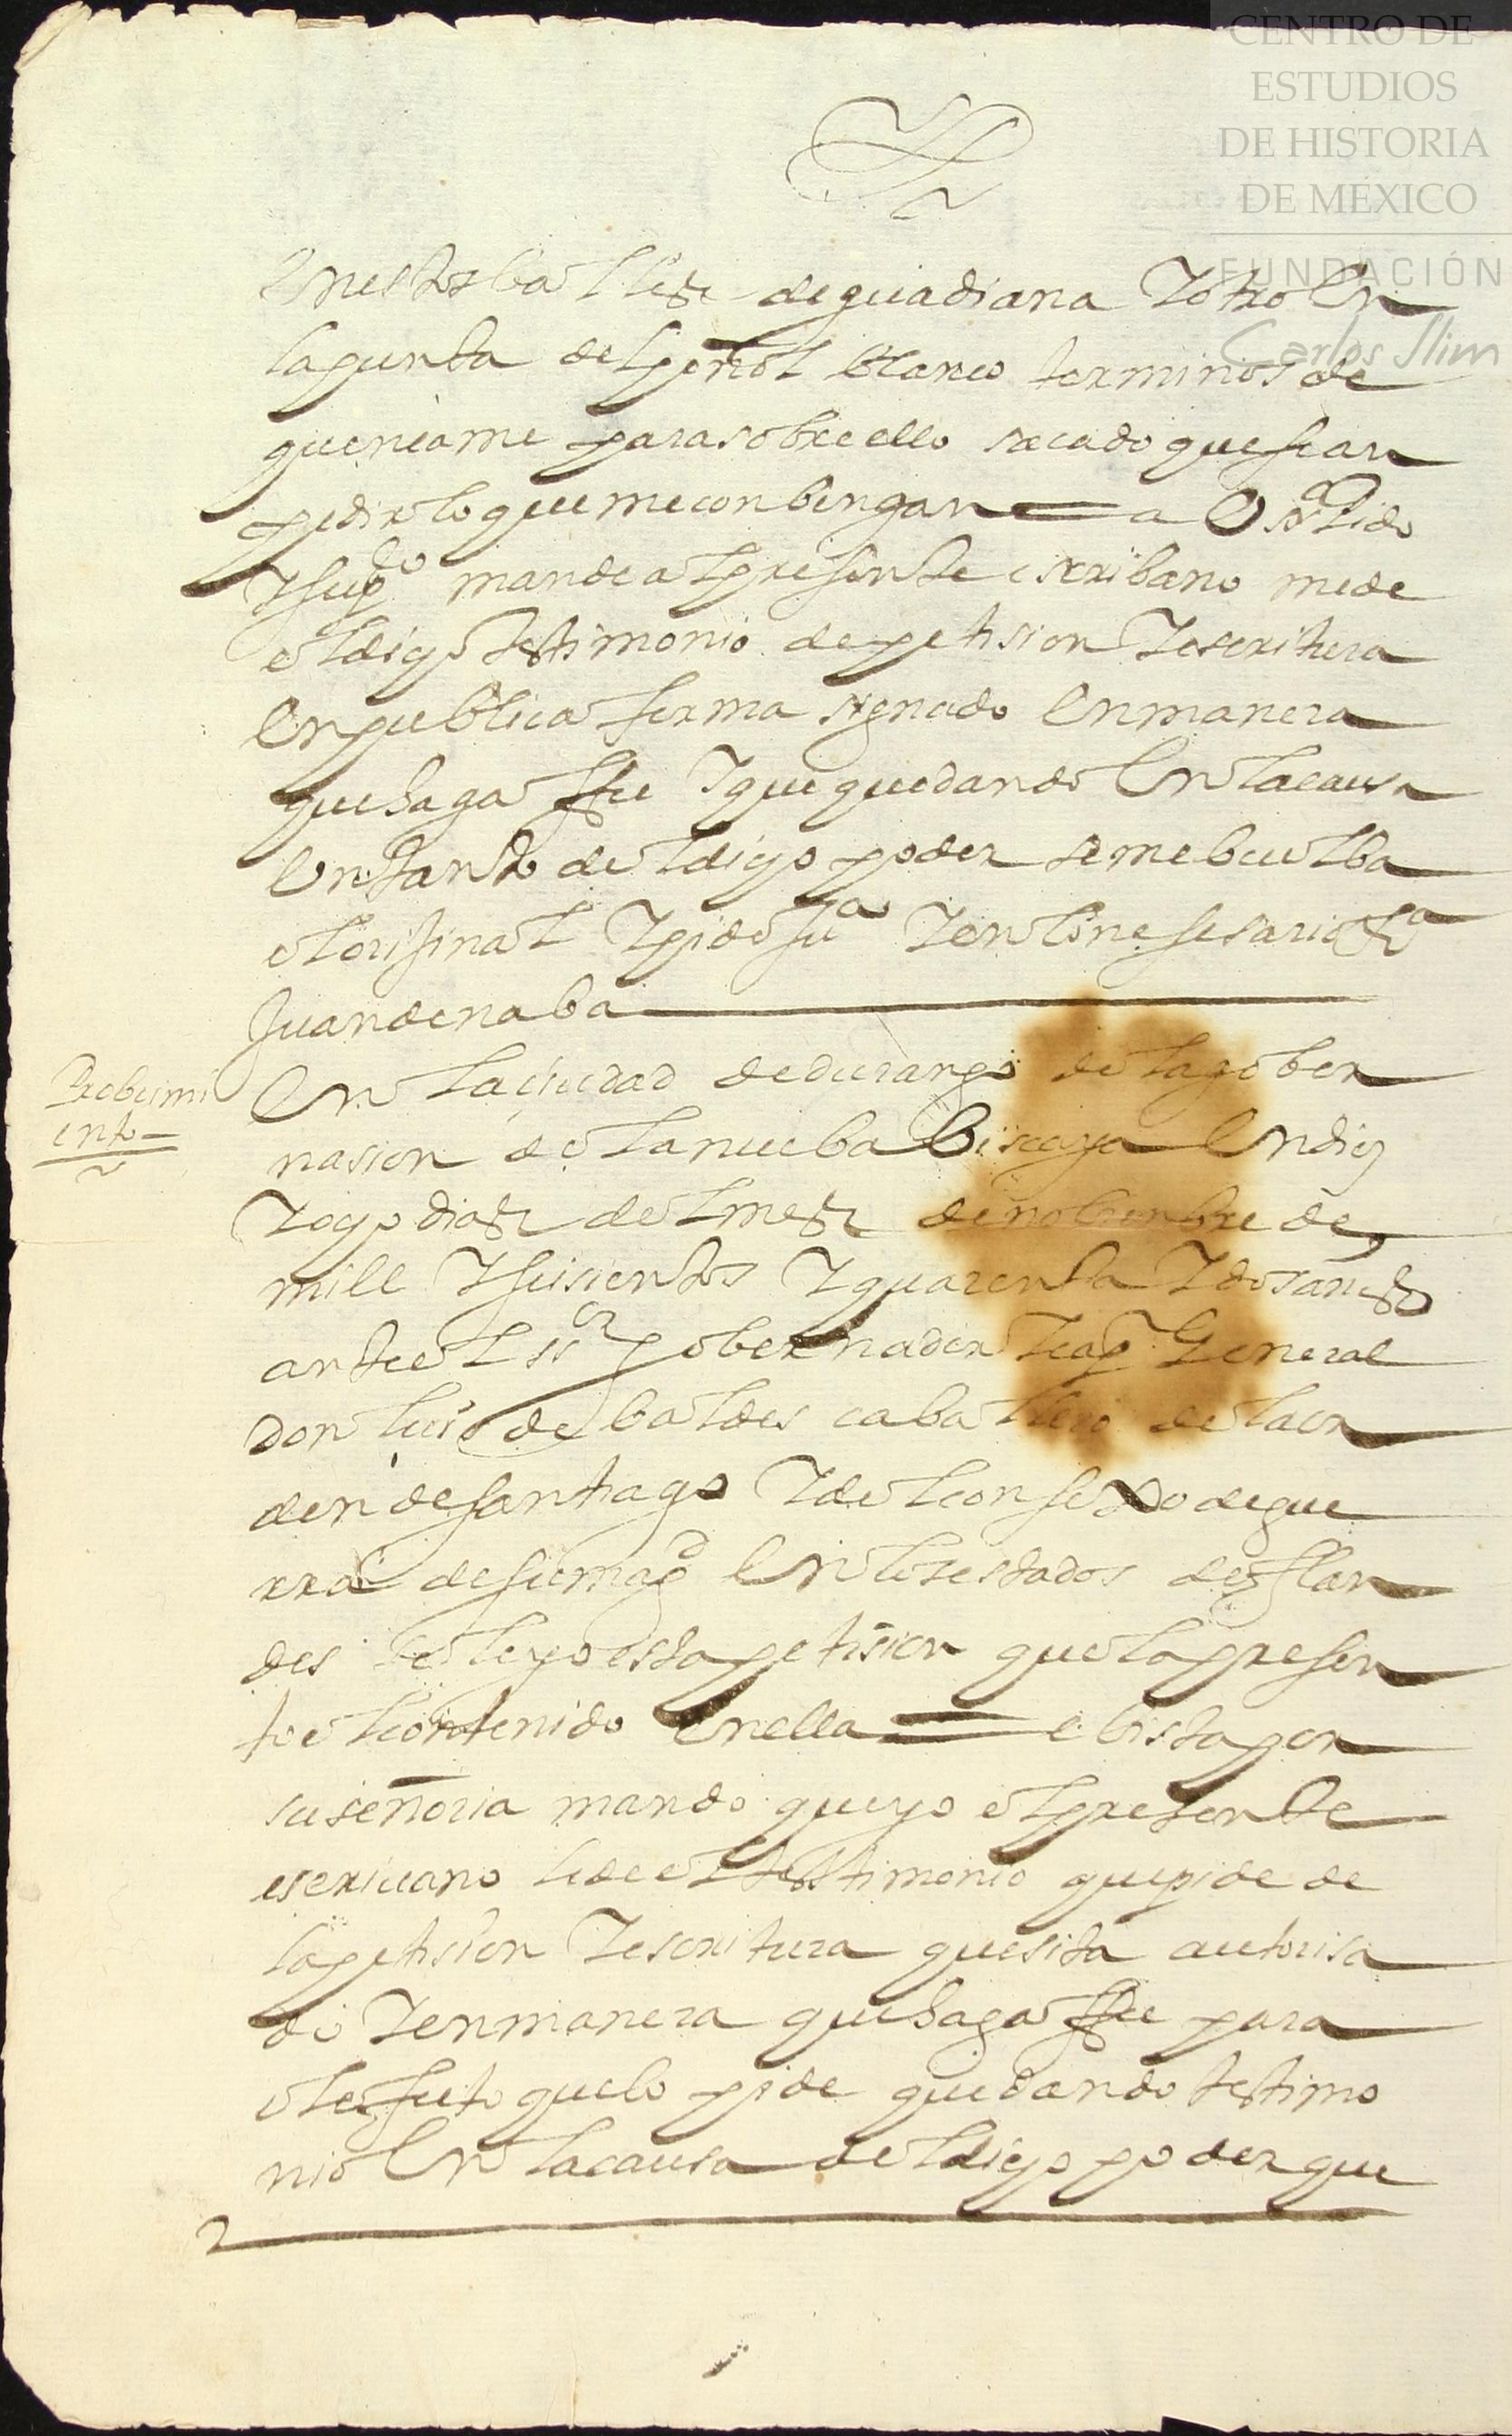 CENTRO DE
ESTUDIOS
DE HISTORIA
DE MÉXICO
FUNDACIÓN
Carlos Slim
En estos balles de guadiana Y otro En
la punta del peñol blanco terminos de
queneame para sobre ello sacado que sean
pedir lo que me conbengan = a V sª pido
Y supco mande al presente escribano me de
el dicho testimonio de petision Y escritura
En publica forma signado En manera
que haga ffee Y que quedando En la causa
En tanto del dicho poder se me buelba
el orijinal Y pido jusª Y en lo nesesario ettª
Juan de naba
Probeimi
ento
En la ciudad de durango de la gober
nasion de la nueba Biscaya En dies
Y ocho dias del mes de nobienbre de
mill Y seisientos Y quarenta Y dos años
ante el ssor gobernador Y capn General
don luis de baldes caballero de la or
den de santiago Y del consexo de gue
rra de su magd En los estados de flan
des se leyo esta petision que la presen
to el contenido En ella = e bista por
su señoria mando que yo el presente
escriuano le de el testimonio que pide de
la petision Y escritura que sita autorisa
do Y en manera que haga ffee para
el efeto que lo pide quedando testimo
nio En la causa del dicho poder que